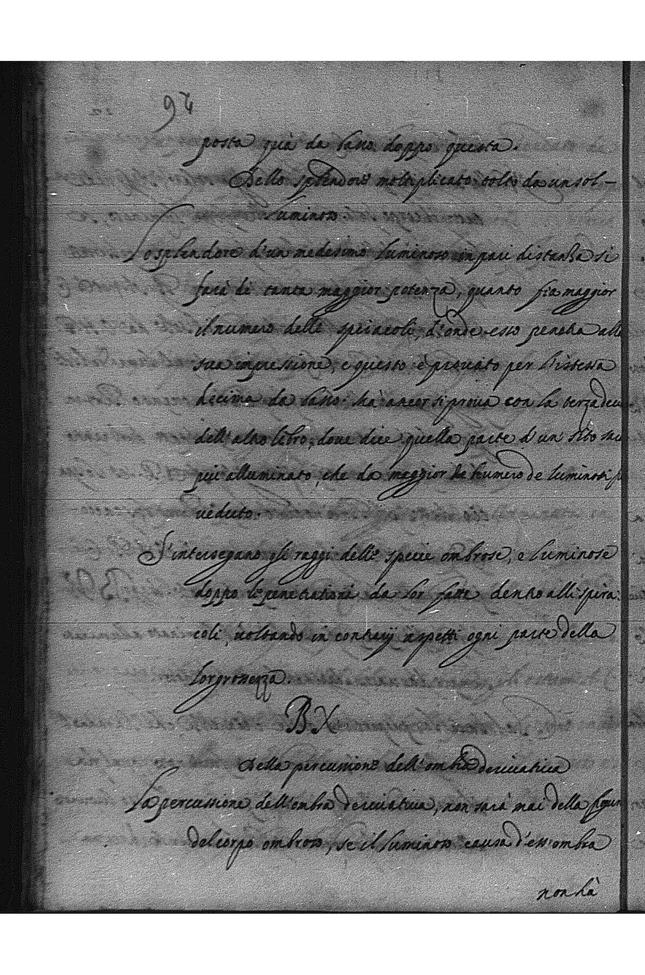 94
posta quà da basso doppo questa.
Dello splendore moltiplicato tolto da un sol
luminoso
Lo splendore d'un medesimo luminoso in pari distanza si
farà di tanta maggior potenza, quanto fia maggior
il numero delle spiracoli, d'onde esso penetra alla
sua impressione, e questo è provato per l'istessa
decima da basso: hà ancor si prova con la terza
dell'altro libro, dove dice quella parte d'un sito
più alluminato, che da maggior numero de luminosi
veduto.
S'intersegano gli raggi delle specie ombrose, e luminose
doppo le penetrationi da lor fatte dentro alli spira
coli, voltando in contrarij aspetti ogni parte della
lor grossezza.
BX
Della percussione dell'ombra derivativa
La percussione dell'ombra derivativa, non sarà mai della figura
del corpo ombroso, se il luminoso causa d'ess'ombra
non hà